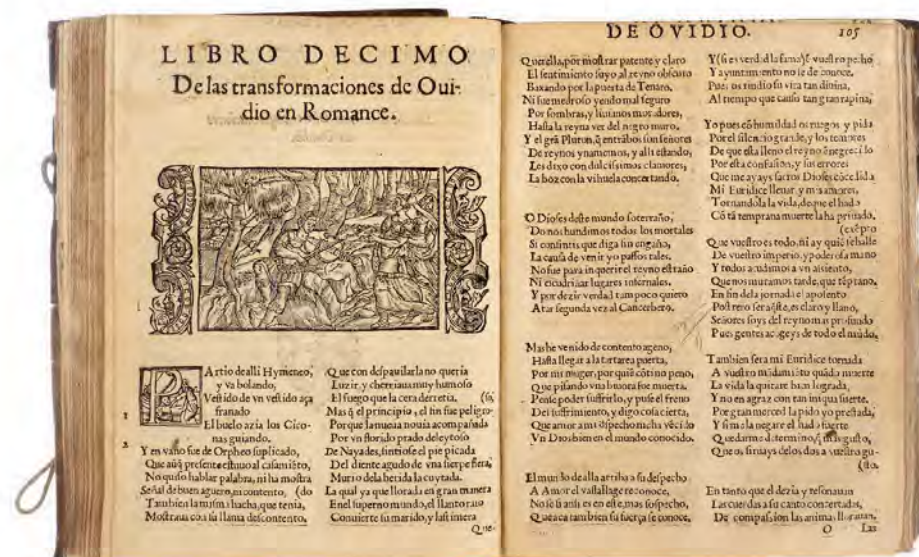 LIBRO DECIMO
De las transformaciones de Oui-
dio en Romance.
PArtio de alli Hymeneo,
y va bolando,
Vestido de vn vestido aça
franado
El buelo azia los Cico-
nas guiando.
Y en vano fue de Orpheo suplicado,
Que aũq̃ presente estuuo al casamiẽto,
No quiso hablar palabra, ni ha mostra
Señal de buen aguero, ni contento, (do
Tambien la misma hacha, que tenia,
Mostraua con su llama descontento.
Que con despauilarla no queria
Luzir, y cherriaua muy humoso
El fuego que la cera derretia. (so,
Mas q̃ el principio, el fin fue peligro-
Porque la nueua nouia acompañada
Por vn florido prado deleytoso
De Nayades, sintiose el pie picada
Del diente agudo de vna sierpe fiera,
Murio dela herida la cuytada.
La qual ya que llorada en gran manera
Enel superno mundo, el llanto raro
Conuierte su marido, y lastimera
Que-
DE OVIDIO. 105
Querella, por mostrar patente y claro
El sentimiento suyo, al reyno obscuro
Baxando por la puerta de Tenaro.
Ni fue medroso yendo mal seguro
Por sombras, y liuianos moradores,
Hasta la reyna ver del negro muro.
Y el grã Pluton, q̃ entrãbos son señores
De reynos ynamenos, y alli estando,
Les dixo con dulcissimos clamores,
La boz con la vihuela concertando.
O Dioses deste mundo soterraño,
Do nos hundimos todos los mortales
Si consintis que diga sin engaño,
La causa de venir yo passos tales.
No fue para inquerir el reyno estraño
Ni escudriñar lugares infernales.
Y por dezir verdad tampoco quiero
Atar segunda vez al Cancerbero.
Mas he venido de contento ageno,
Hasta llegar a la tartarea puerta,
Por mi muger, por quiẽ cõtino peno,
Que pisando vna biuora fue muerta.
Pense poder suffrirlo, y puse el freno
Del suffrimiento, y digo cosa cierta,
Que amor a mi despecho me ha vẽcido
Vn Dios bien en el mundo conocido.
El mundo de alla arriba a su despecho
A Amor el vassallage reconoce,
No se si ansi es en este, mas sospecho,
Que aca tambien su fuerça se conoce,
Y (si es verdad la fama) ẽ vuestro pecho
Y ayuntamiento no se de conoce.
Pues os rindio su vira tan diuina,
Al tiempo que causo tan gran rapina,
Yo pues cõ humildad os ruego, y pida
Por el silencio grande, y los temores
De que esta lleno el reyno ẽnegrecido
Por esta confusion, y sus errores
Que me ayays sacros Dioses cõcedida
Mi Euridice lleuar, y mis amores,
Tornandola la vida, de que el hado
Cõ tã temprana muerte la ha priuado.
(exẽpto
Que vuestro es todo, ni ay quiẽ se halle
De vuestro imperio, y poderosa mano
Y todos acudimos a vn assiento,
Que nos muramos tarde, que tẽprano.
En fin dela jornada el aposento
Postrero sera q̃ste, es claro y llano,
Señores soys del reyno mas profundo
Pues gentes acogeys de todo el mũdo,
Tambien sera mi Euridice tornada
A vuestro mãdamiẽto quãdo muerte
La vida la quitare bien lograda,
Y no en agraz con tan iniqua suerte.
Por gran merced la pido yo prestada,
Y si me la negare el hado fuerte
Quedarme determino, q̃ mas gusto,
Que os siruays delos dos a vuestro gu-
(sto.
En tanto que el dezia y resonauan
Las cuerdas a su canto concertadas,
De compassion las animas llorauan,
O Las